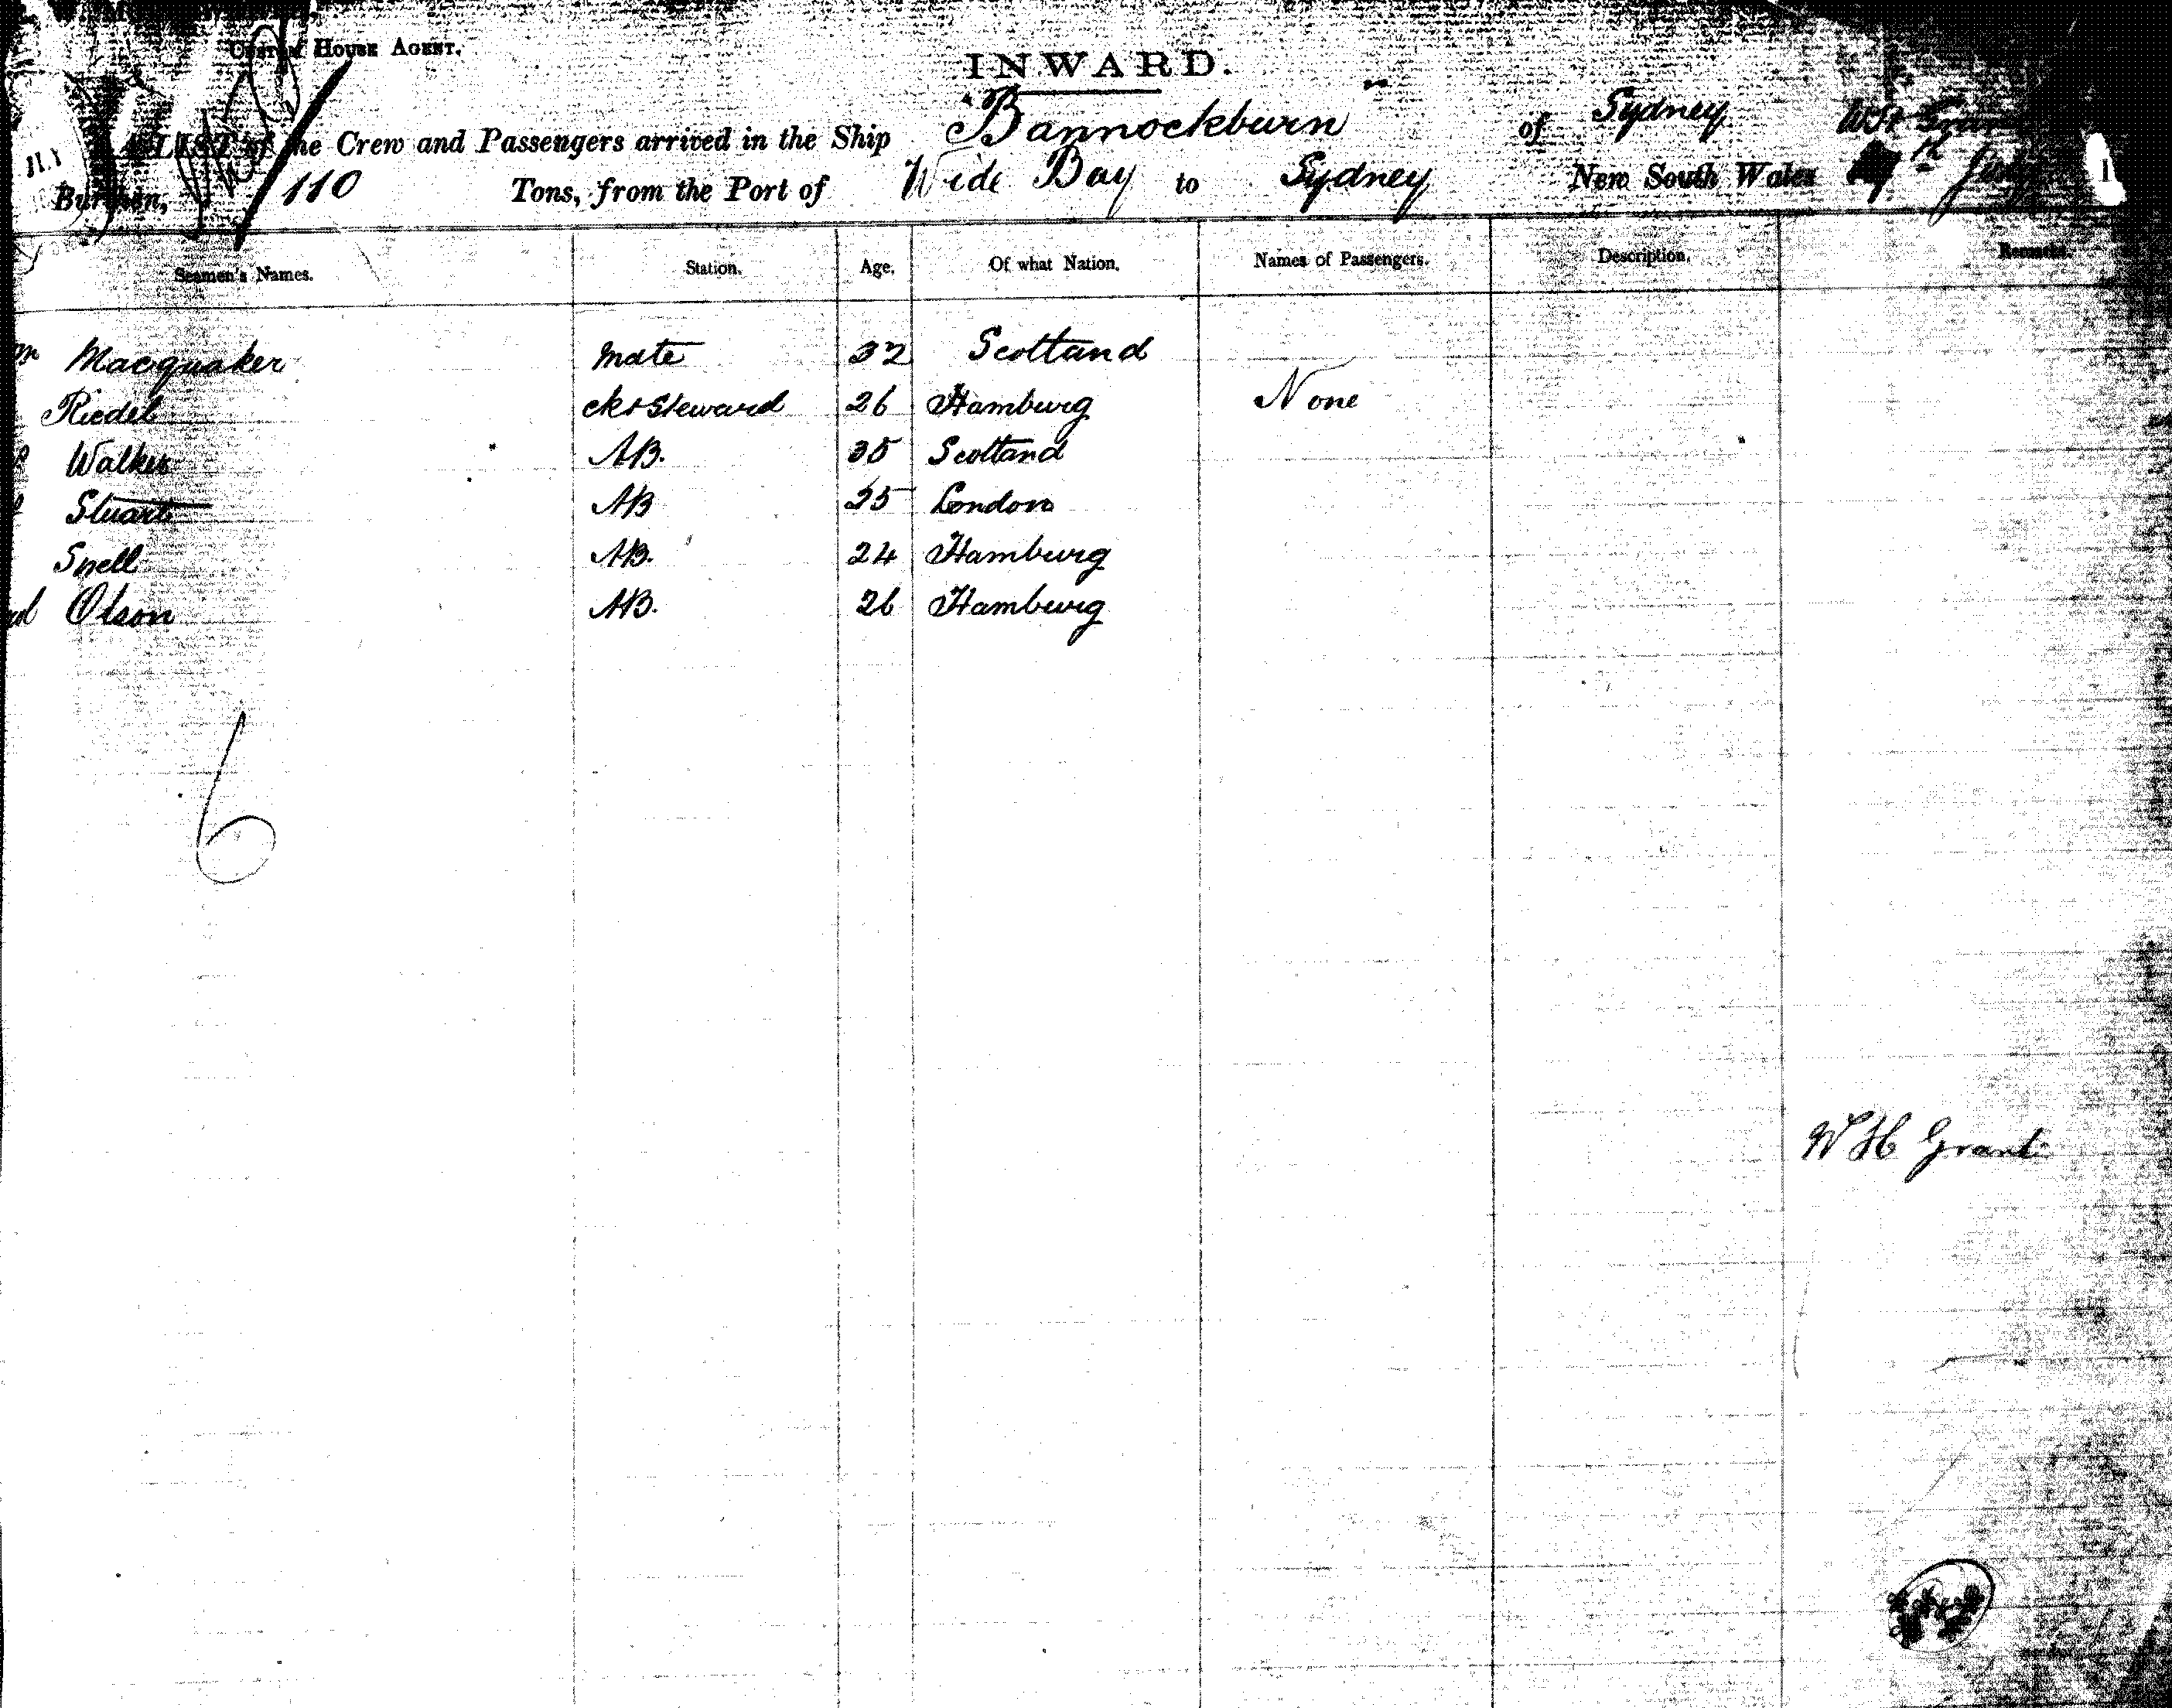 Custom House Agent.
INWARD.
A LIST of the Crew and Passengers arrived in the Ship Bannockburn of Sydney WH Grant
Burthen, 110 Tons, from the Port of Wide Bay to Sydney New South Wales
Seamen's Names. Station. Age. Of what Nation. Names of Passengers. Description. Remarks.
Macquaker Mate 32 Scotland
Riedel ck & Steward 26 Hamburg None
Walker AB. 35 Scotland
Stuart AB 25 London
Snell AB. 24 Hamburg
Olson AB. 26 Hamburg
6
W H Grant